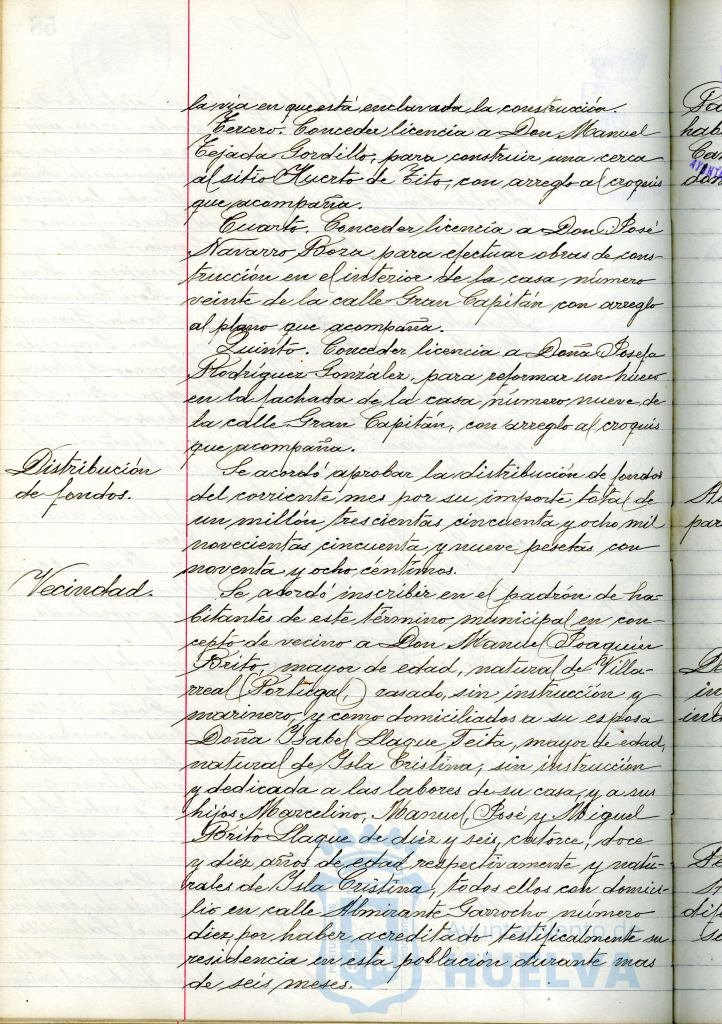 la vía en que está enclavada la construcción.
Tercero. Conceder licencia a Don Manuel
Tejada Gordillo, para construir una cerca
al sitio Huerto de Tito, con arreglo al croquis
que acompaña.
Cuarto. Conceder licencia a Don José
Navarro Boza para efectuar obras de cons-
trucción en el interior de la casa número
veinte de la calle Gran Capitán con arreglo
al plano que acompaña.
Quinto. Conceder licencia a Doña Josefa
Rodríguez González, para reformar un hueco
en la fachada de la casa número nueve de
la calle Gran Capitán, con arreglo al croquis
que acompaña.
Distribución
de fondos.
Se acordó aprobar la distribución de fondos
del corriente mes por su importe total de
un millón trescientas cincuenta y ocho mil
novecientas cincuenta y nueve pesetas con
noventa y ocho céntimos.
Vecindad.
Se acordó inscribir en el padrón de ha-
bitantes de este término municipal en con-
cepto de vecino a Don Manuel Joaquin
Brito, mayor de edad, natural de Villa-
rreal (Portugal,) casado, sin instrucción y
marinero, y como domiciliados a su esposa
Doña Isabel Llaque Teita, mayor de edad,
natural de Isla Cristina, sin instrucción
y dedicada a las labores de su casa, y a sus
hijos Marcelino, Manuel, José y Miguel
Brito Llaque de diez y seis, catorce, doce
y diez años de edad respectivamente y natu-
rales de Isla Cristina, todos ellos con domici-
lio en calle Almirante Garrocho número
diez, por haber acreditado testificalmente su
residencia en esta población durante mas
de seis meses.
Ayuntamiento de
HUELVA